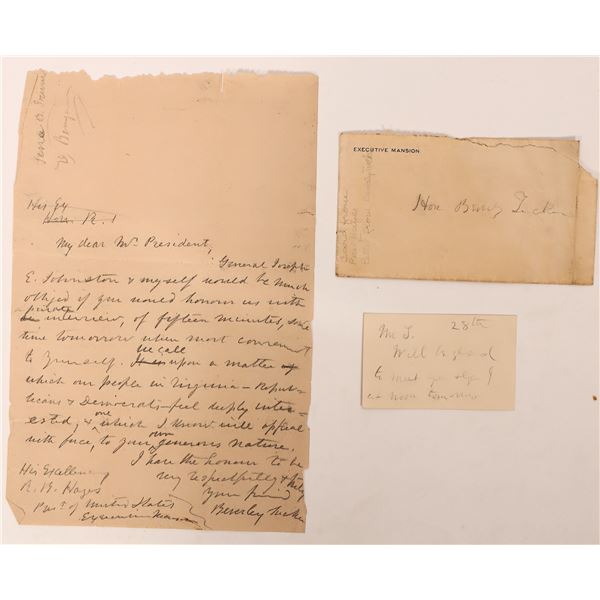 His Ex
Hon R.
My dear Mr. President,
General Joseph
E. Johnston & myself would be much
obliged if you would honour us with
a private interview, of fifteen minutes, some
time tomorrow when most convenient
to yourself. We call upon a matter
which our people in Virginia - Repub-
licans & Democrats - feel deeply inter-
ested, & one which I know will appeal
with force, to your own generous nature.
I have the honour to be
very respectfully & truly
Your friend
Beverley Tucker
His Excellency
R. B. Hayes
Prest of United States
Executive Mansion
EXECUTIVE MANSION
Hon Beverly Tucker
28th
Mr T.
Will be glad
to meet you
at noon tomorrow